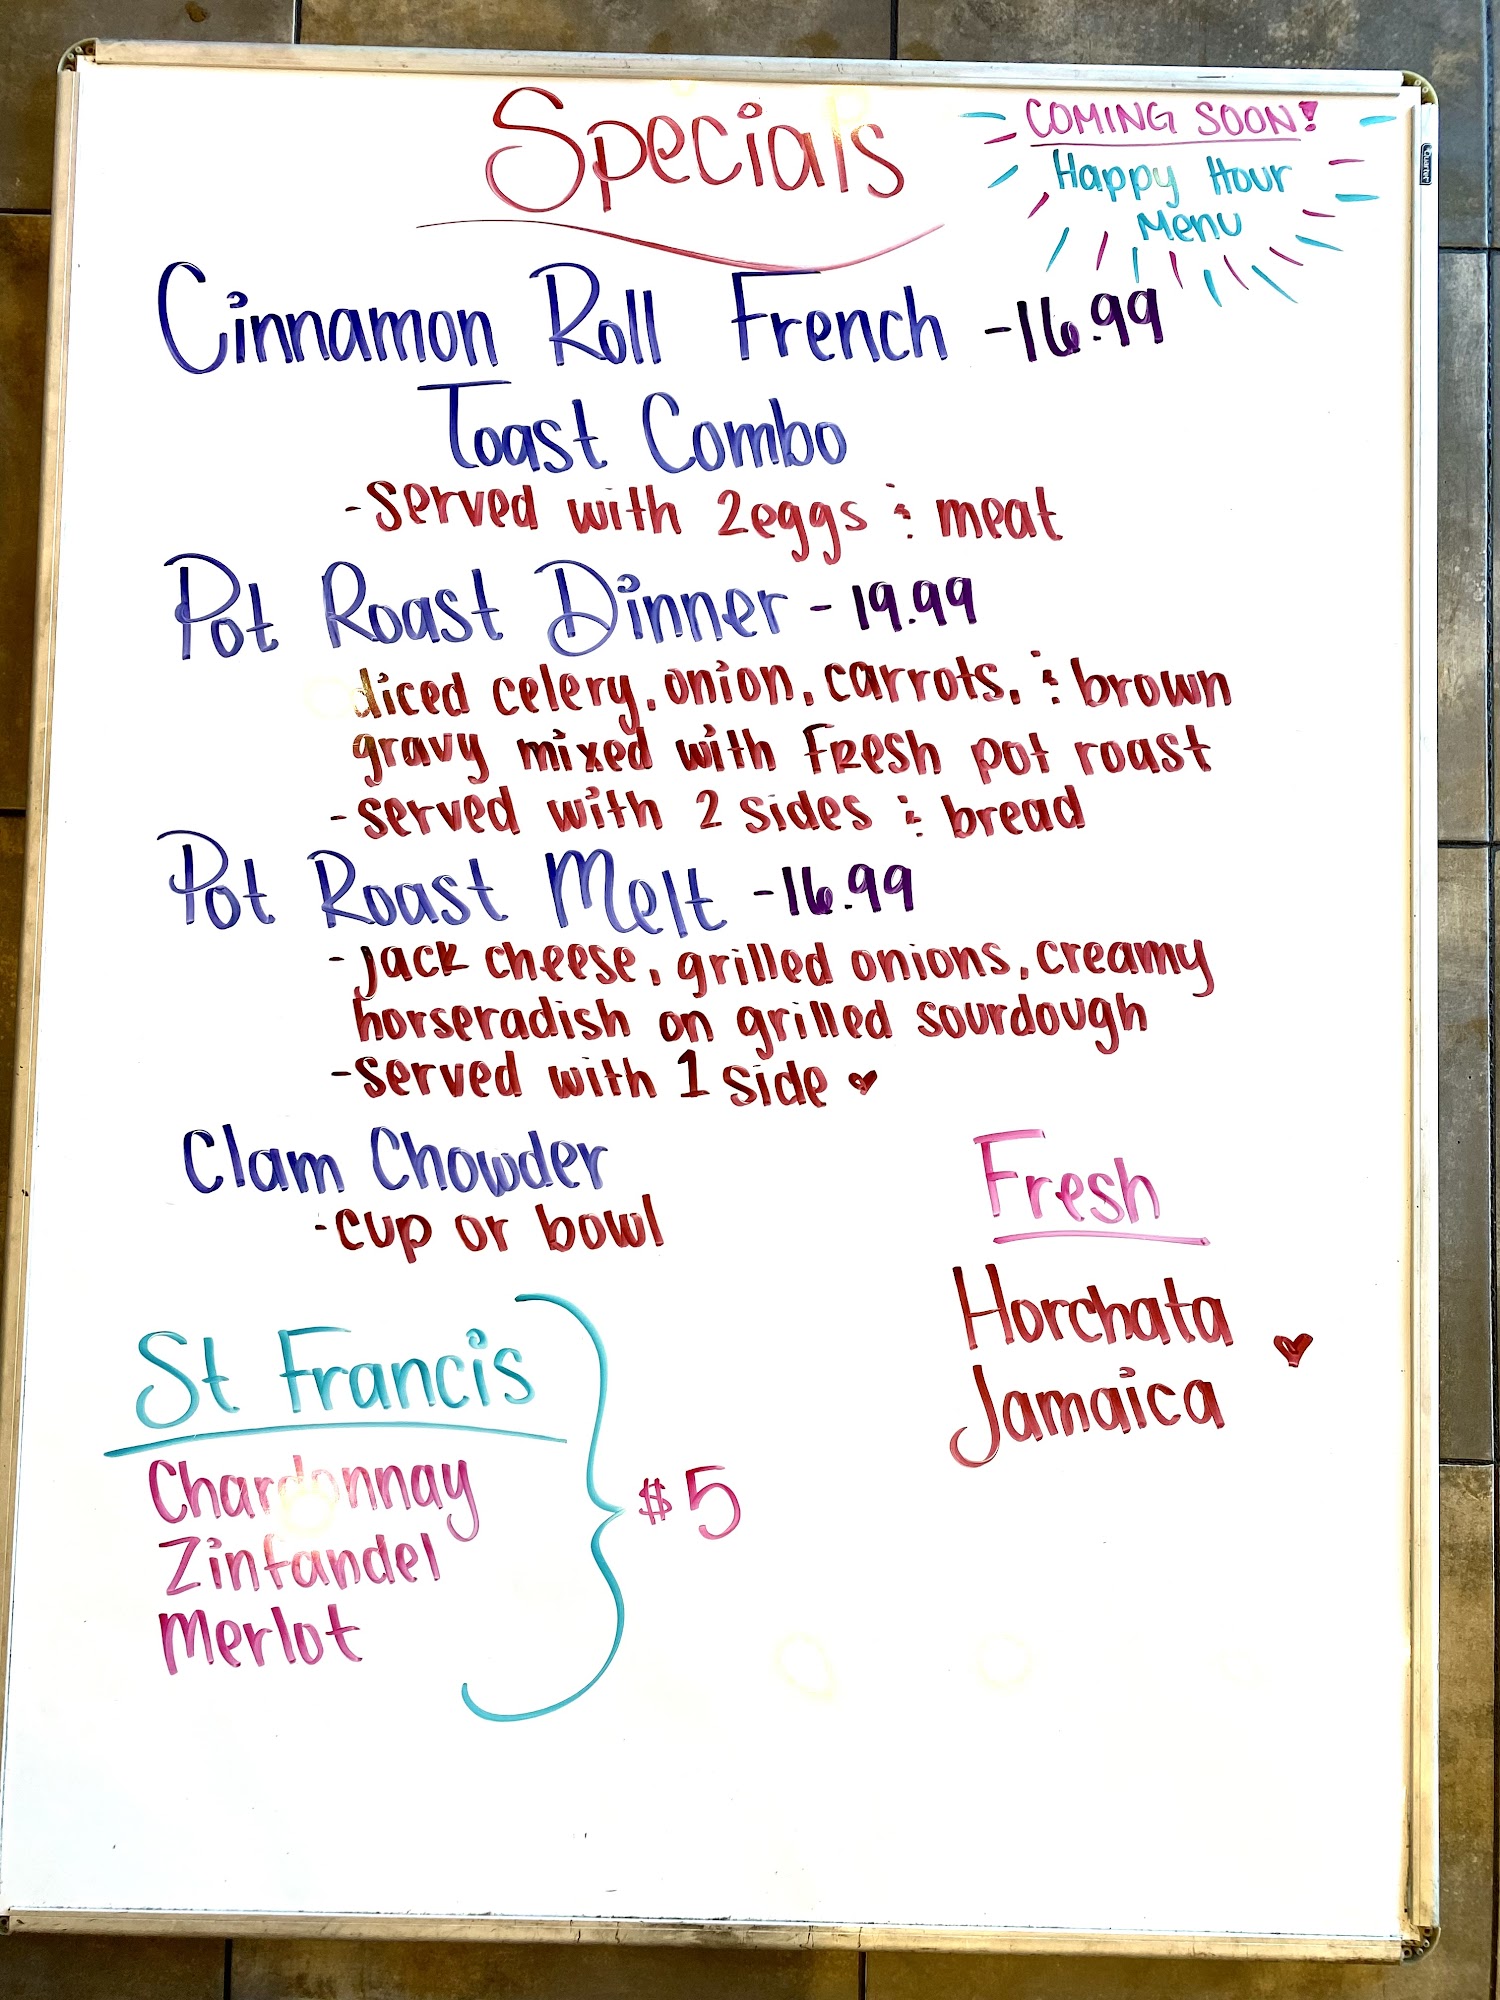 Specials
COMING SOON!
Happy Hour
Menu
Cinnamon Roll French -16.99
Toast Combo
-served with 2 eggs & meat
Pot Roast Dinner - 19.99
diced celery, onion, carrots, & brown
gravy mixed with fresh pot roast
-served with 2 sides & bread
Pot Roast Melt -16.99
-jack cheese, grilled onions, creamy
horseradish on grilled sourdough
-served with 1 side ♥
Clam Chowder
-cup or bowl
Fresh
Horchata ♥
Jamaica
St Francis
Chardonnay
Zinfandel
Merlot
$5
Quartet